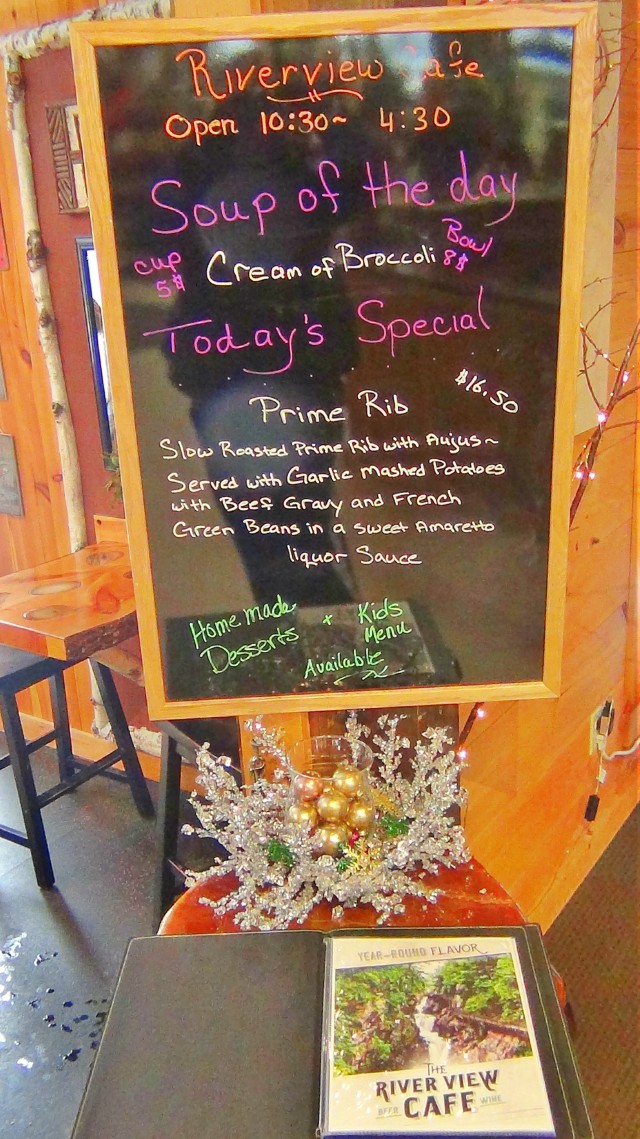 Riverview Cafe
Open 10:30~ 4:30
Soup of the day
Cup 5$
Cream of Broccoli
Bowl 8$
Today's Special
$16.50
Prime Rib
Slow Roasted Prime Rib with Aujus~
Served with Garlic Mashed Potatoes
with Beef Gravy and French
Green Beans in a sweet Amaretto
liquor Sauce
Homemade Desserts + Kids Menu
Available
YEAR-ROUND FLAVOR
THE
RIVER VIEW
BEER CAFE WINE